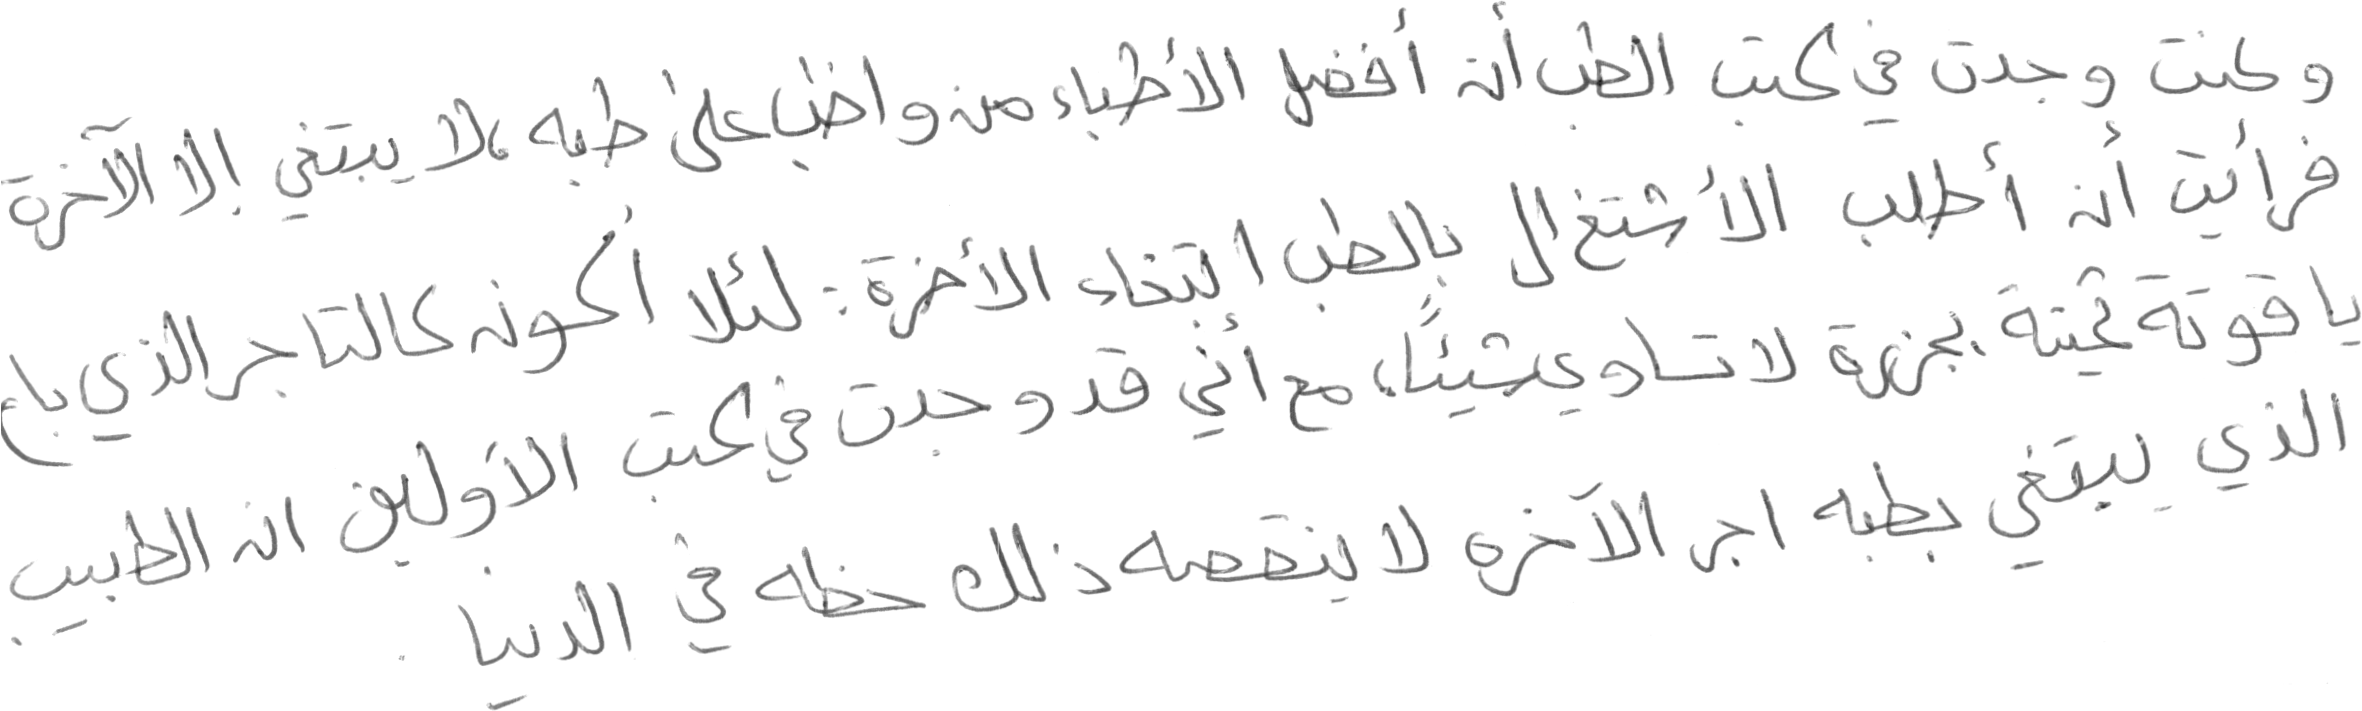 وكنت وجدت في كتب الطب أن أفضل الأطباء من واظب على طبه، لا يبتغي إلا الآخرة
فرأيت أن أطلب الأشتغال بالطب ابتغاء الأخرة: لئلا أكون كالتاجر الذي باع
ياقوتة ثمينة بخرزة لا تساوي شيئًا، مع أني قد وجدت في كتب الأولين ان الطبيب
الذي يبتغي بطبه اجر الآخره لا ينقصه ذلك حظه في الدنيا.